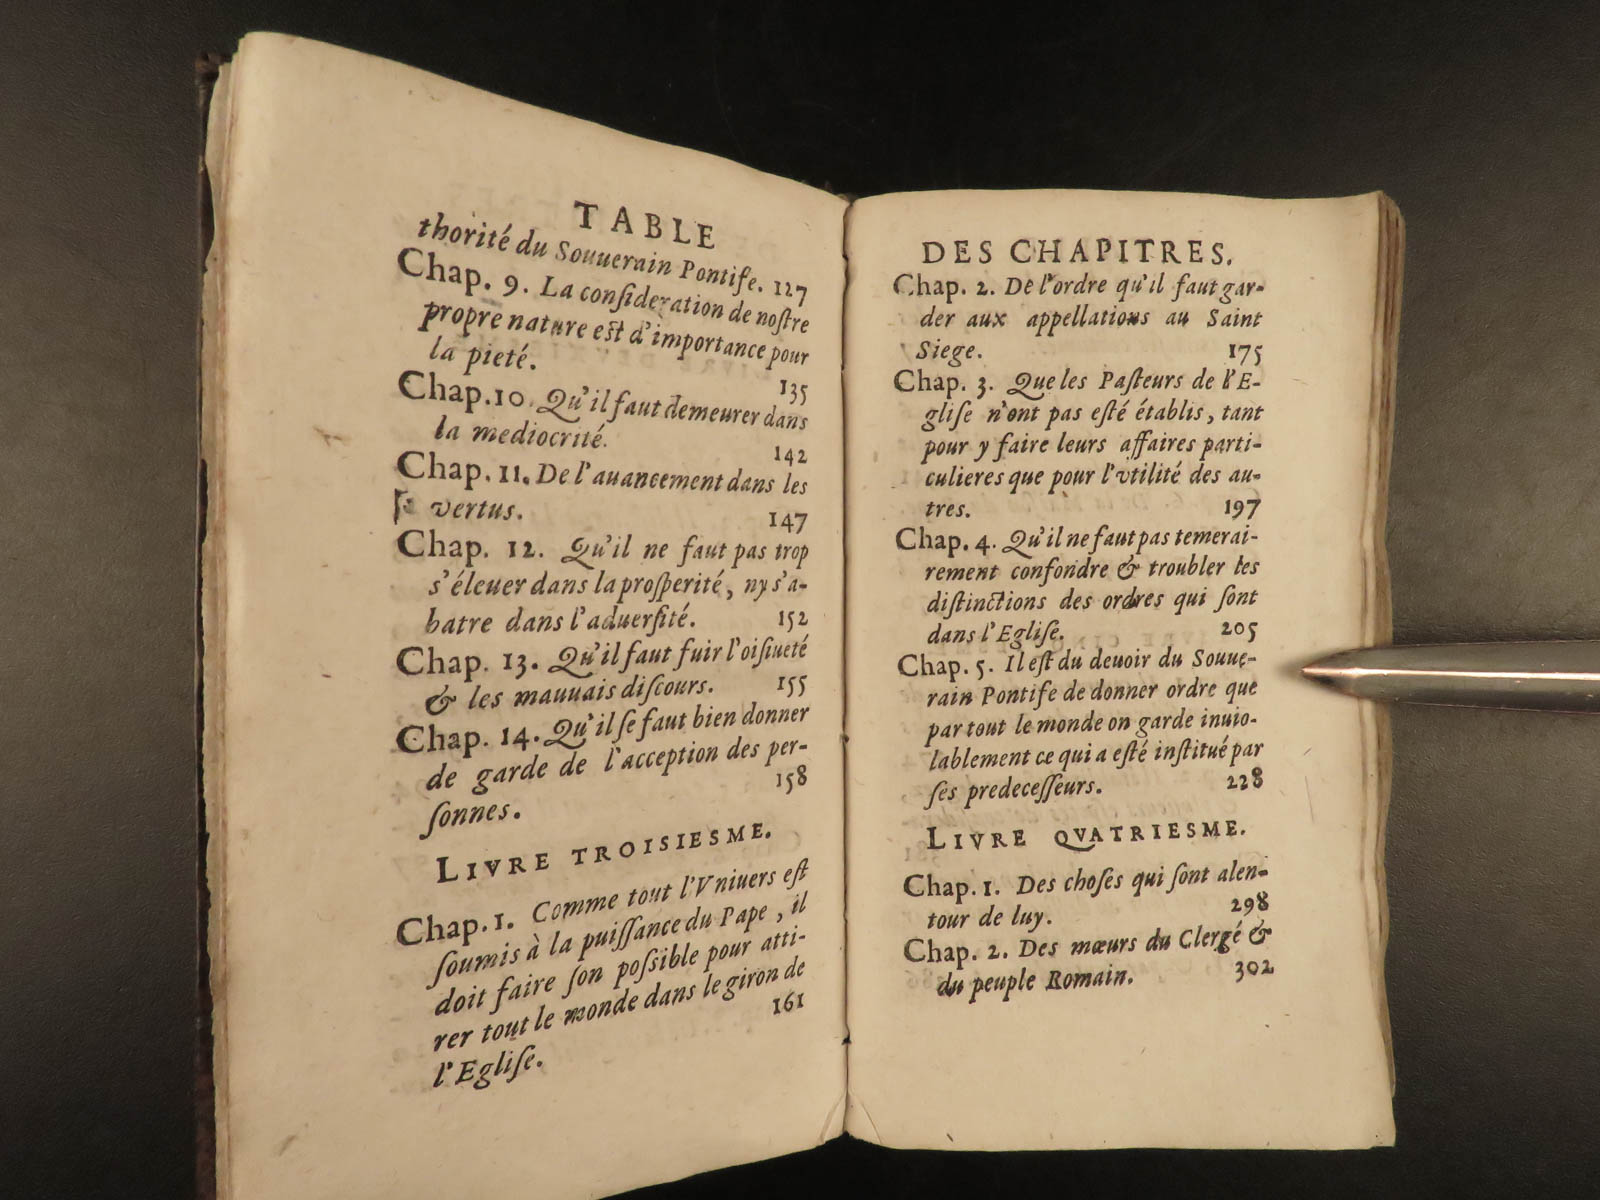 TABLE
thorité du Souuerain Pontife. 127
Chap. 9. La conſideration de noſtre
propre nature eſt d'importance pour
la pieté. 135
Chap. 10. Qu'il faut demeurer dans
la mediocrité. 142
Chap. 11. De l'auancement dans les
vertus. 147
Chap. 12. Qu'il ne faut pas trop
s'éleuer dans la proſperité, ny s'a-
batre dans l'aduerſité. 152
Chap. 13. Qu'il faut fuir l'oiſiueté
& les mauuais diſcours. 155
Chap. 14. Qu'il ſe faut bien donner
de garde de l'acception des per-
ſonnes. 158
LIVRE TROISIESME.
Chap. 1. Comme tout l'Vniuers eſt
ſoumis à la puiſſance du Pape, il
doit faire ſon poſsible pour atti-
rer tout le monde dans le giron de
l'Egliſe. 161
DES CHAPITRES.
Chap. 2. De l'ordre qu'il faut gar-
der aux appellations au Saint
Siege. 175
Chap. 3. Que les Paſteurs de l'E-
gliſe n'ont pas eſté établis, tant
pour y faire leurs affaires parti-
culieres que pour l'vtilité des au-
tres. 197
Chap. 4. Qu'il ne faut pas temerai-
rement confondre & troubler les
diſtinctions des ordres qui ſont
dans l'Egliſe. 205
Chap. 5. Il eſt du deuoir du Souue-
rain Pontife de donner ordre que
par tout le monde on garde inuio-
lablement ce qui a eſté inſtitué par
ſes predeceſſeurs. 228
LIVRE QVATRIESME.
Chap. 1. Des choſes qui ſont alen-
tour de luy. 298
Chap. 2. Des mœurs du Clergé &
du peuple Romain. 302